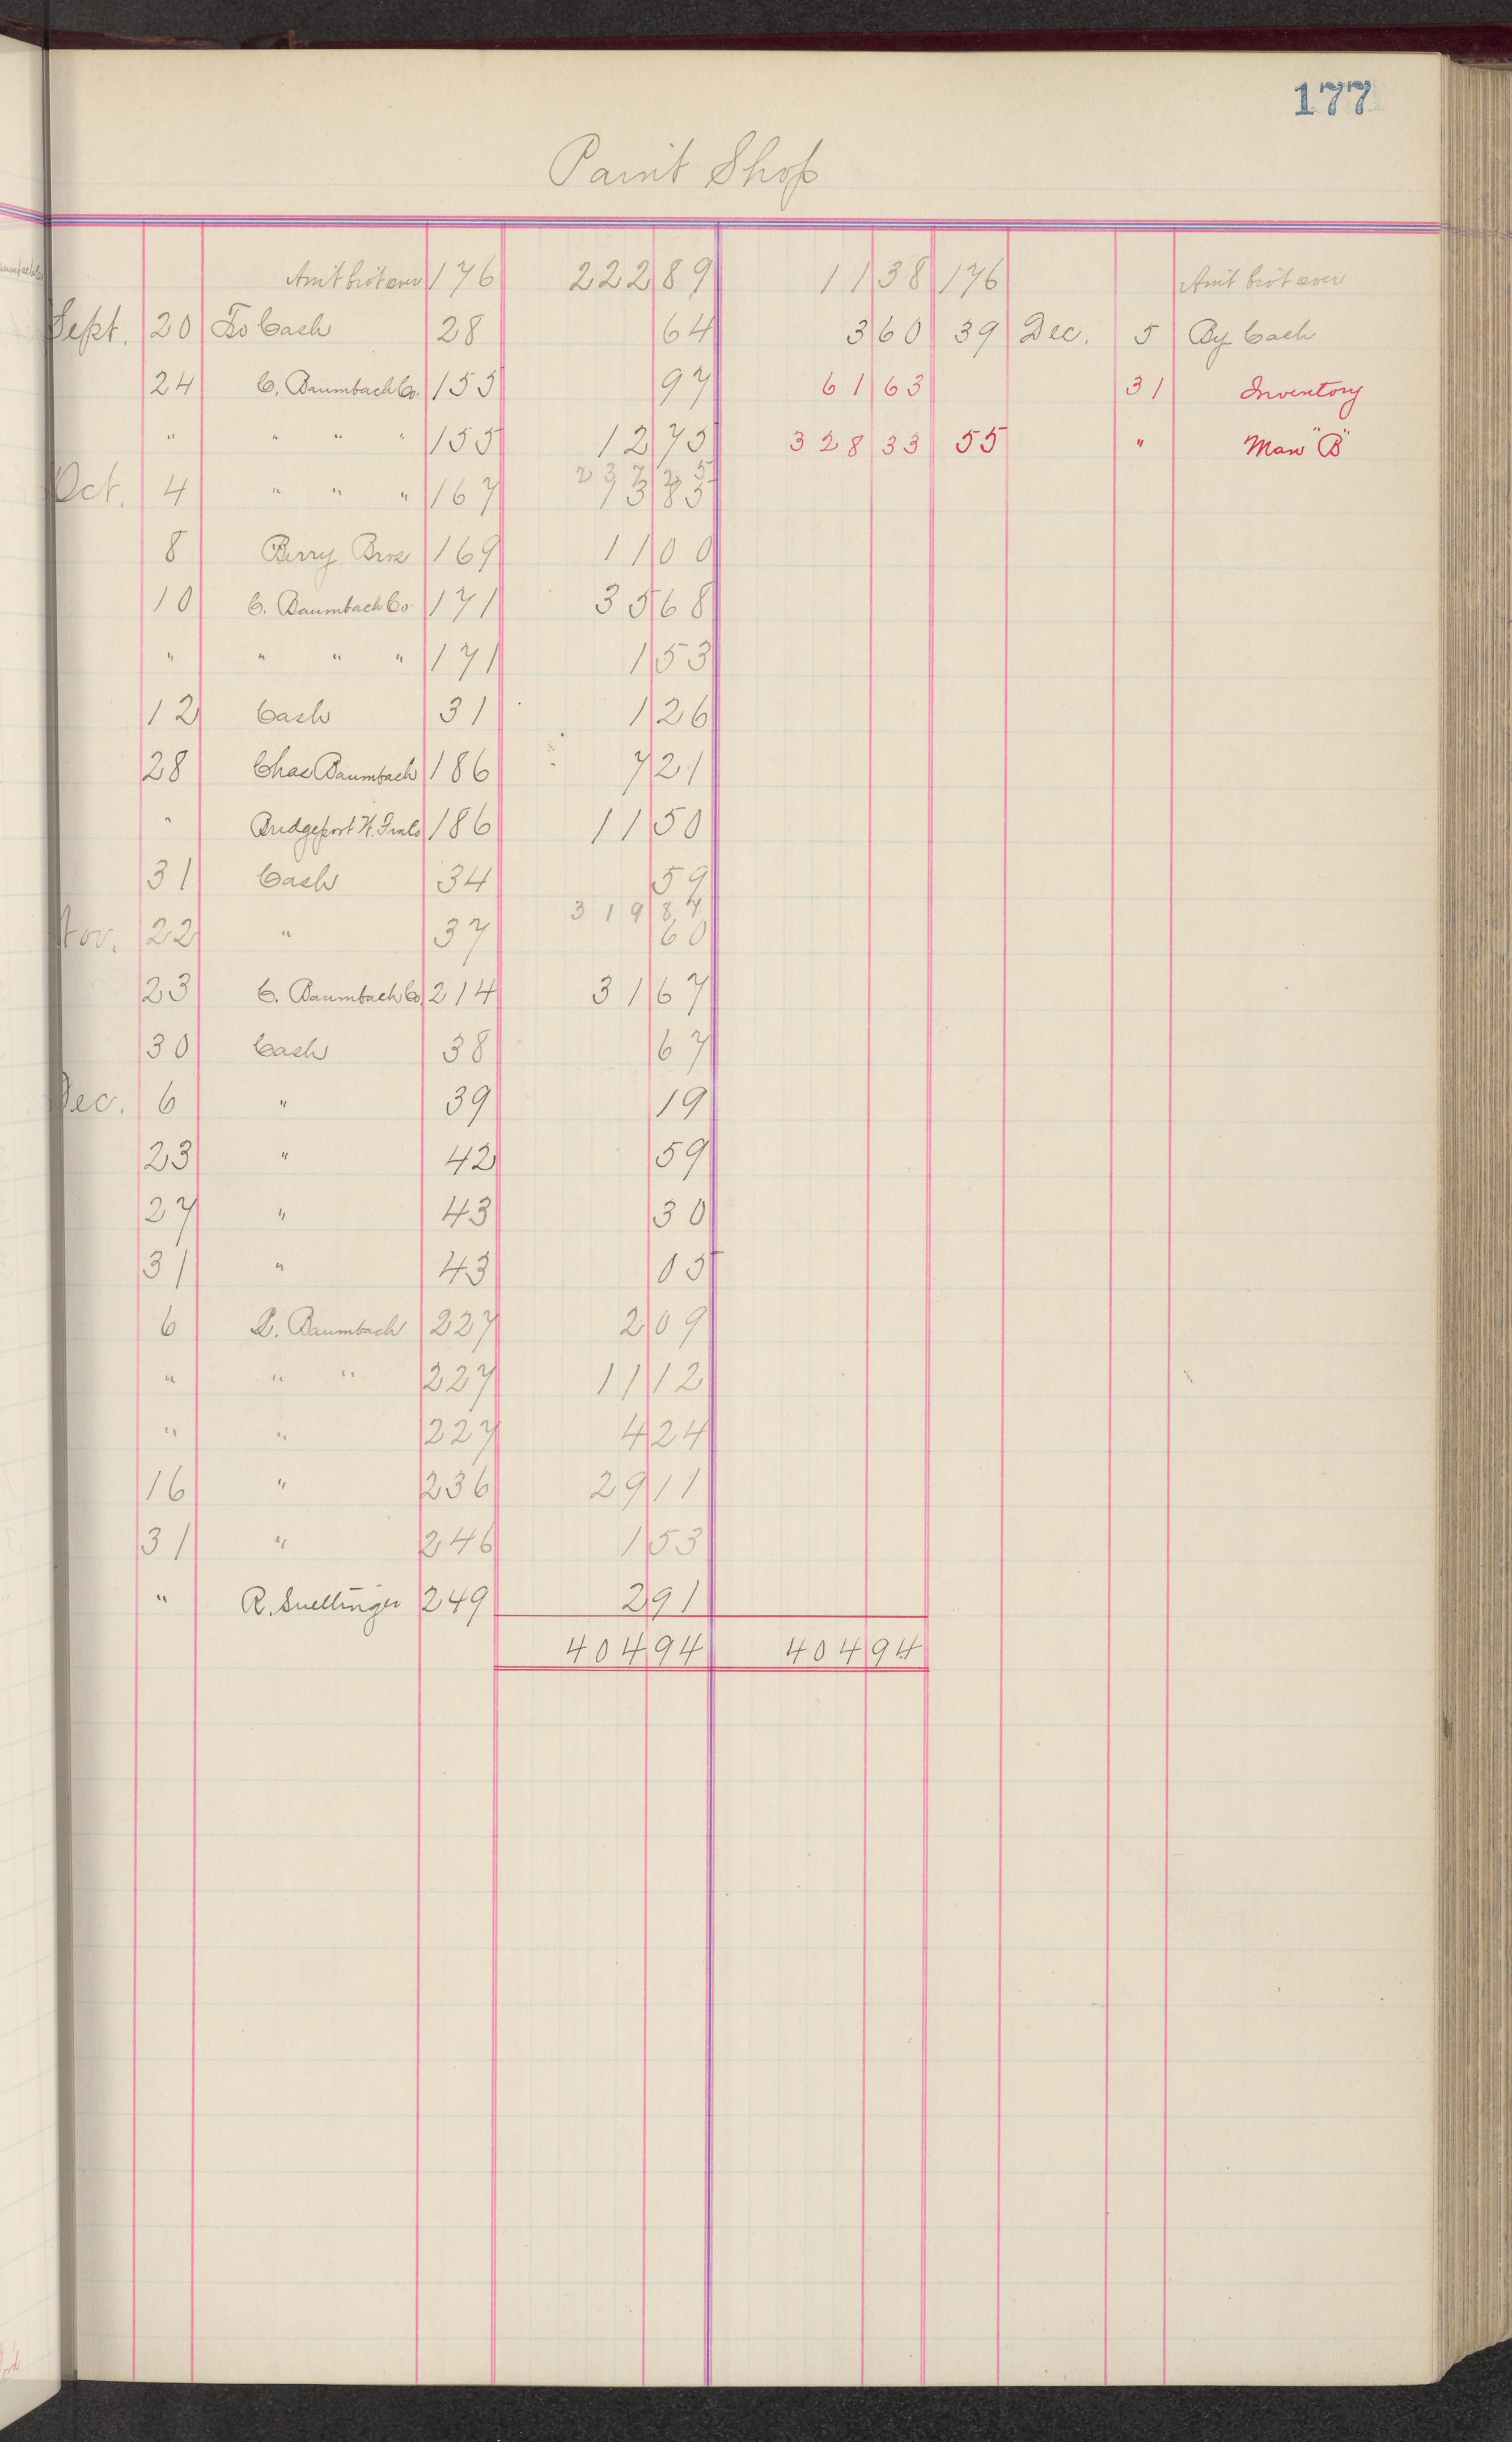 177
Paint Shop
Am't bro't over 176 222 89 11 38 176 Am't bro't over
Sept. 20 To Cash 28 64 3 60 39 Dec. 5 By Cash
24 C. Baumbach Co. 155 97 61 63 31 Inventory
" " " " 155 12 75 328 33 55 " Man "B"
237 25
Oct. 4 " " " 167 13 85
8 Berry Bros 169 11 00
10 C. Baumbach Co. 171 35 68
" " " " 171 1 53
12 Cash 31 1 26
28 Chas Baumbach 186 7 21
" Bridgeport W. 186 11 50
31 Cash 34 59
319 84
Nov. 22 " 37 60
23 C. Baumbach Co. 214 31 67
30 Cash 38 67
Dec. 6 " 39 19
23 " 42 59
27 " 43 30
31 " 43 05
6 C. Baumbach 227 2 09
" " " 227 11 12
" " 227 4 24
16 " 236 29 11
31 " 246 1 53
" R. Snellinger 249 2 91
404 94 404 94